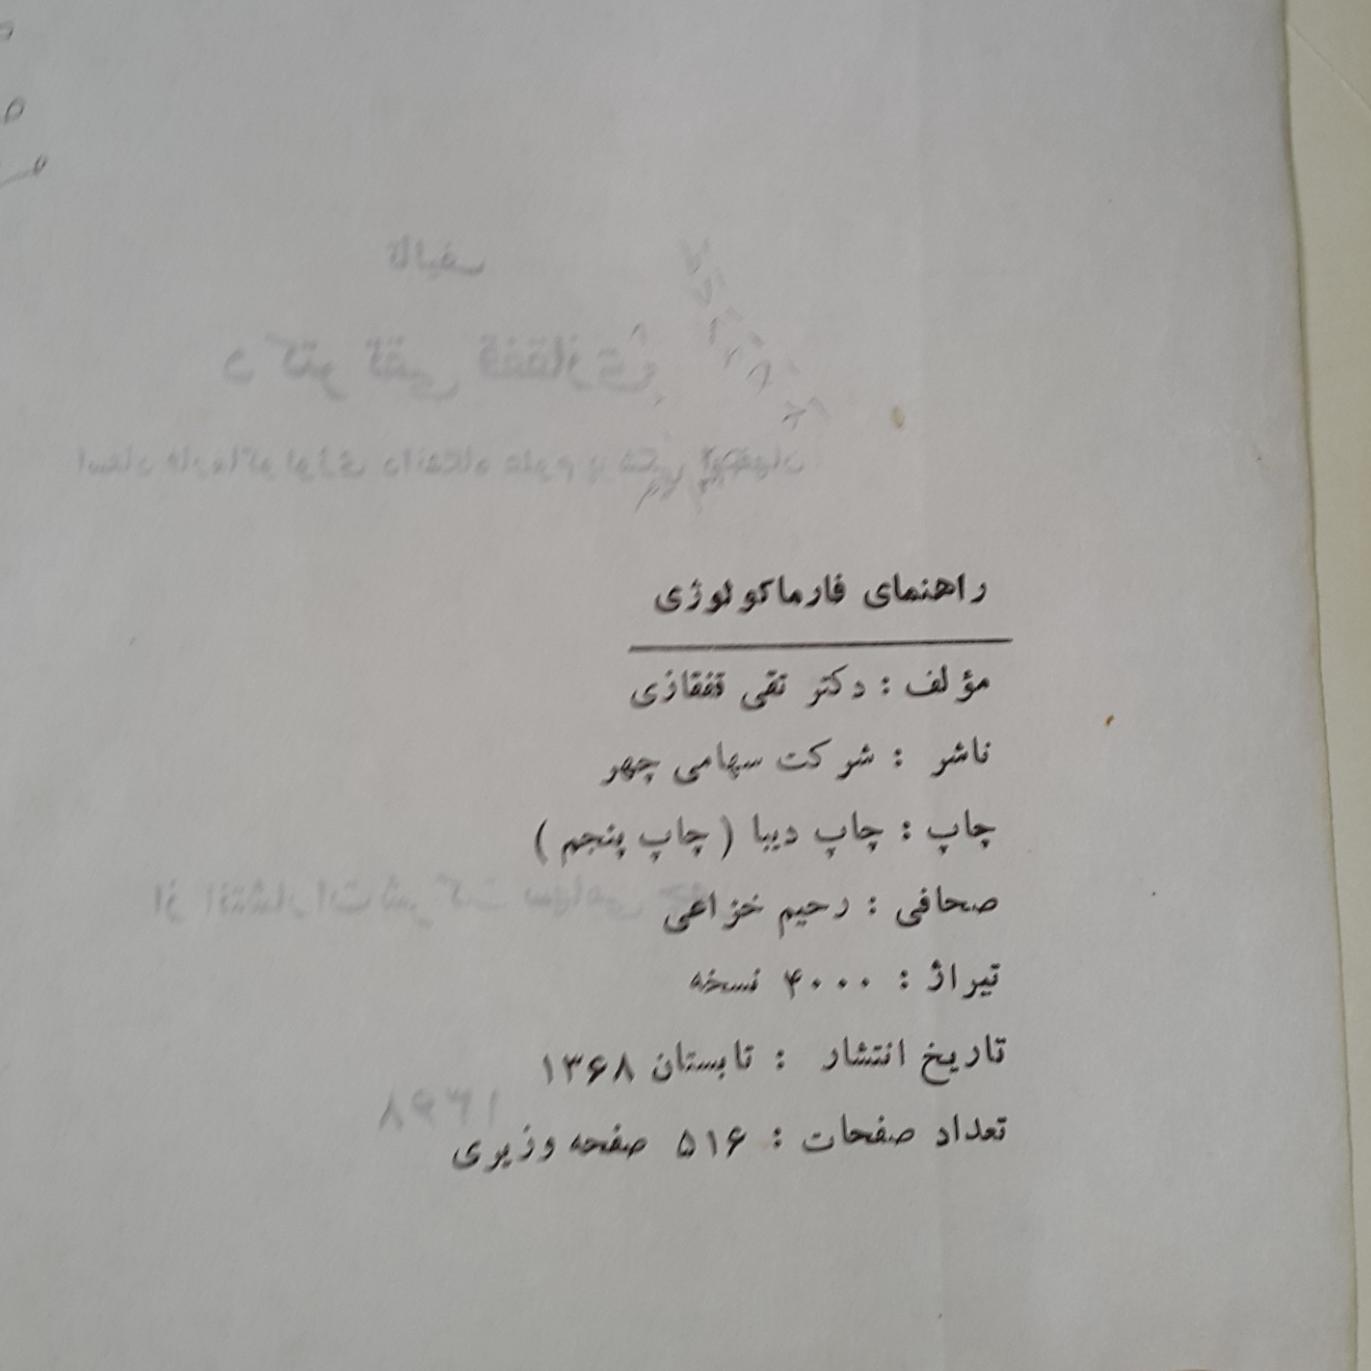 راهنمای فارماکولوژی
مؤلف : دکتر تقی قفقازی
ناشر : شرکت سهامی چهر
چاپ : چاپ دیبا ( چاپ پنجم )
صحافی : رحیم خزاعی
تیراژ : ۴۰۰۰ نسخه
تاریخ انتشار : تابستان ۱۳۶۸
تعداد صفحات : ۵۱۶ صفحه وزیری